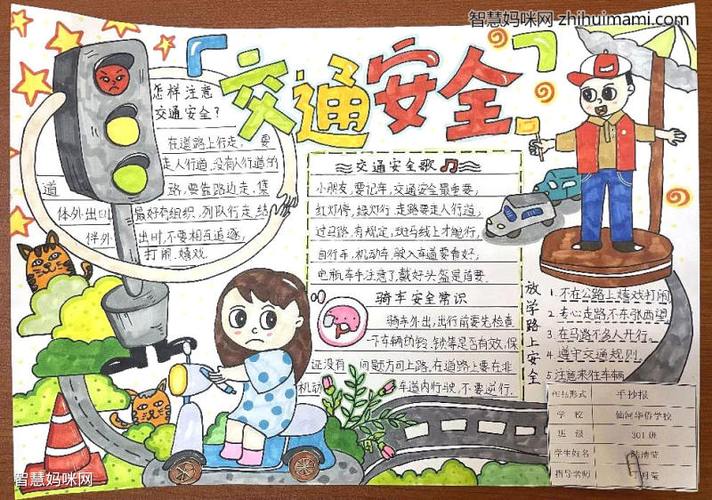 智慧妈咪网 zhihuimami.com
交通安全
怎样注意
交通安全？
在道路上行走，要
走人行道，没有人行道的
道路，要靠路边走，集
体外出时，最好有组织，列队行走，结
伴外出时，不要相互追逐，
打闹、嬉戏
交通安全歌
小朋友，要记牢，交通安全最重要，
红灯停，绿灯行，走路要走人行道，
过马路，有规定，斑马线上才能行，
自行车，机动车，驶入车道要看好，
电瓶车手注意了，戴好头盔是首要
骑车安全常识
骑车外出，出行前要先检查
一下车辆的铃、锁等是否有效，保
证没有问题方可上路，在道路上要在非
机动车道内行驶，不要逆行。
放学路上安全
1. 不在公路上嬉戏打闹
2. 专心走路不东张西望
3. 在马路不多人并行。
4. 遵守交通规则。
5. 注意来往车辆
手抄报
学校 仙河华侨学校
班级 301班
学生姓名
指导学师
智慧妈咪网